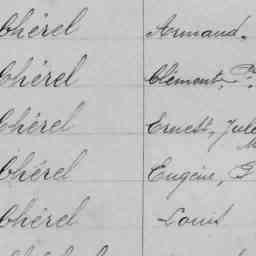 Chérel Armand.
Chérel Clément, P.
Chérel Ernest, Jule
Chérel Eugène,
Chérel Louis